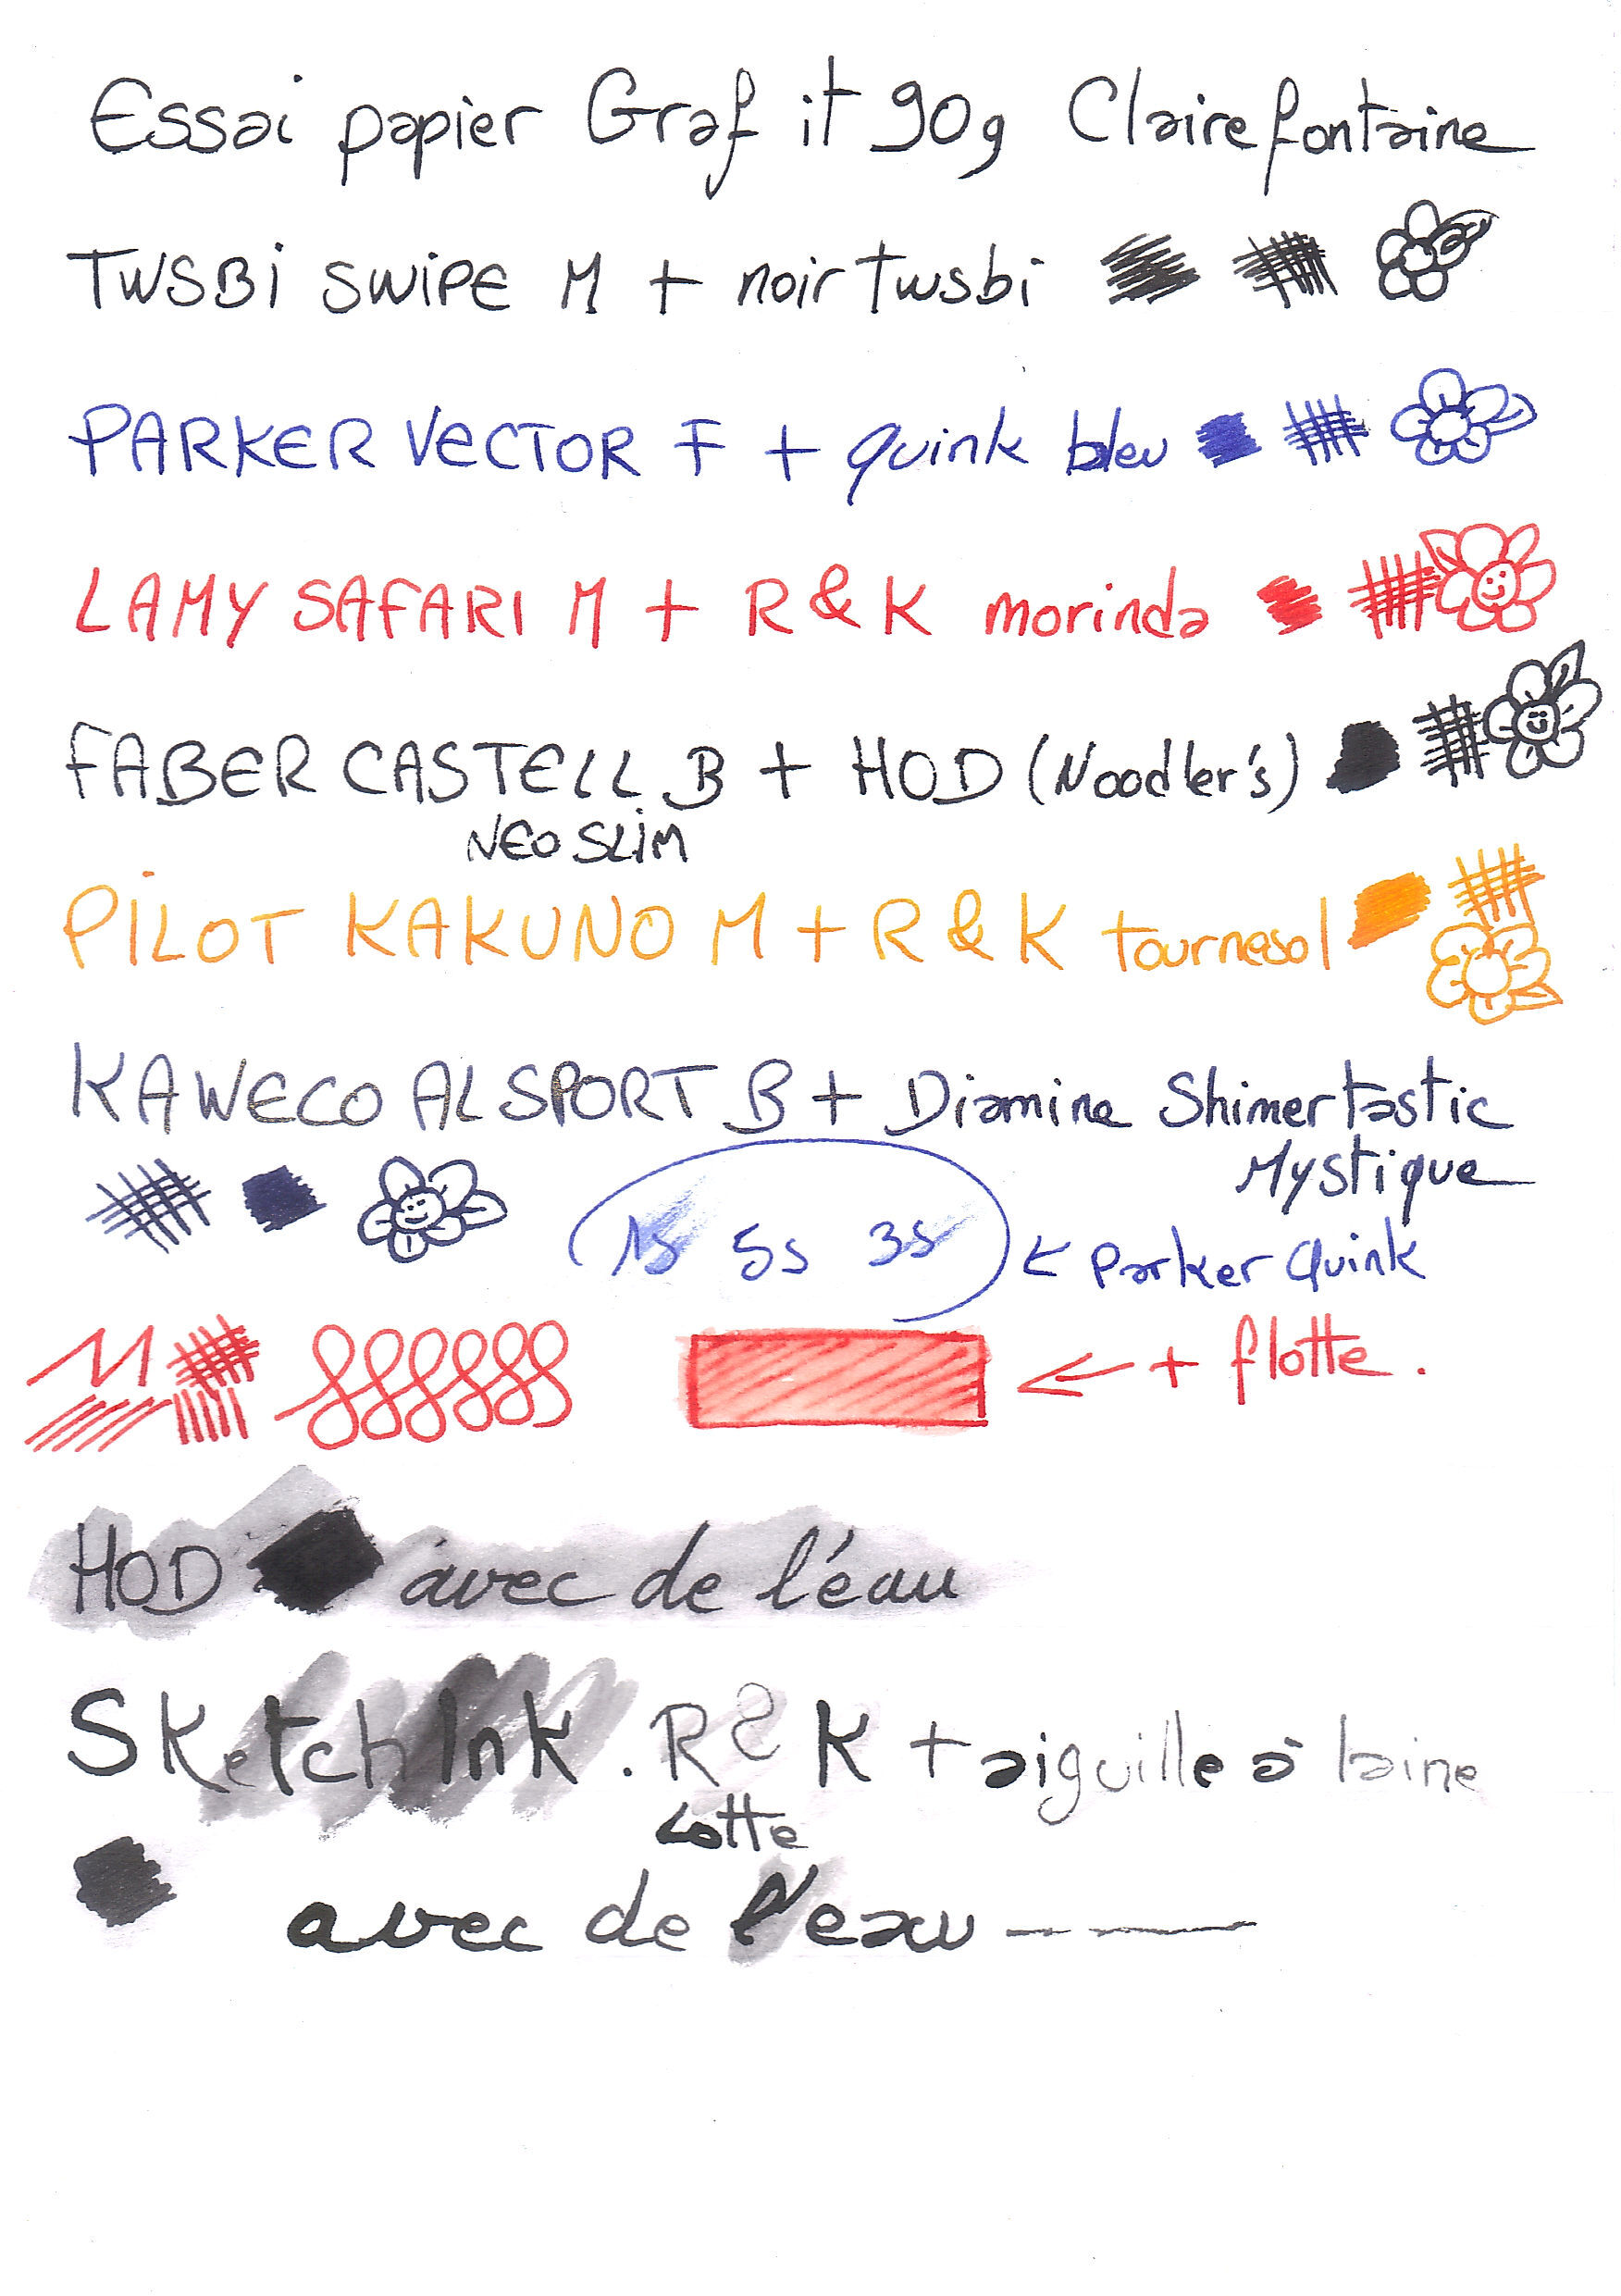 Essai papier Graf it 90g Clairefontaine
TWSBi SWiPE M + noir twsbi
PARKER VECTOR F + quink bleu
LAMY SAFARI M + R & K morinda
FABER CASTELL B + HOD (Noodler's)
NEO SLiM
PiLOT KAKUNO M + R & K tournesol
KAWECO AL SPORT B + Diamine Shimertastic
Mystique
1s 5s 3s ← Parker Quink
← + flotte.
HOD avec de l'éau
SKetch Ink. R & K + aiguille à laine
Lotte
avec de l'eau